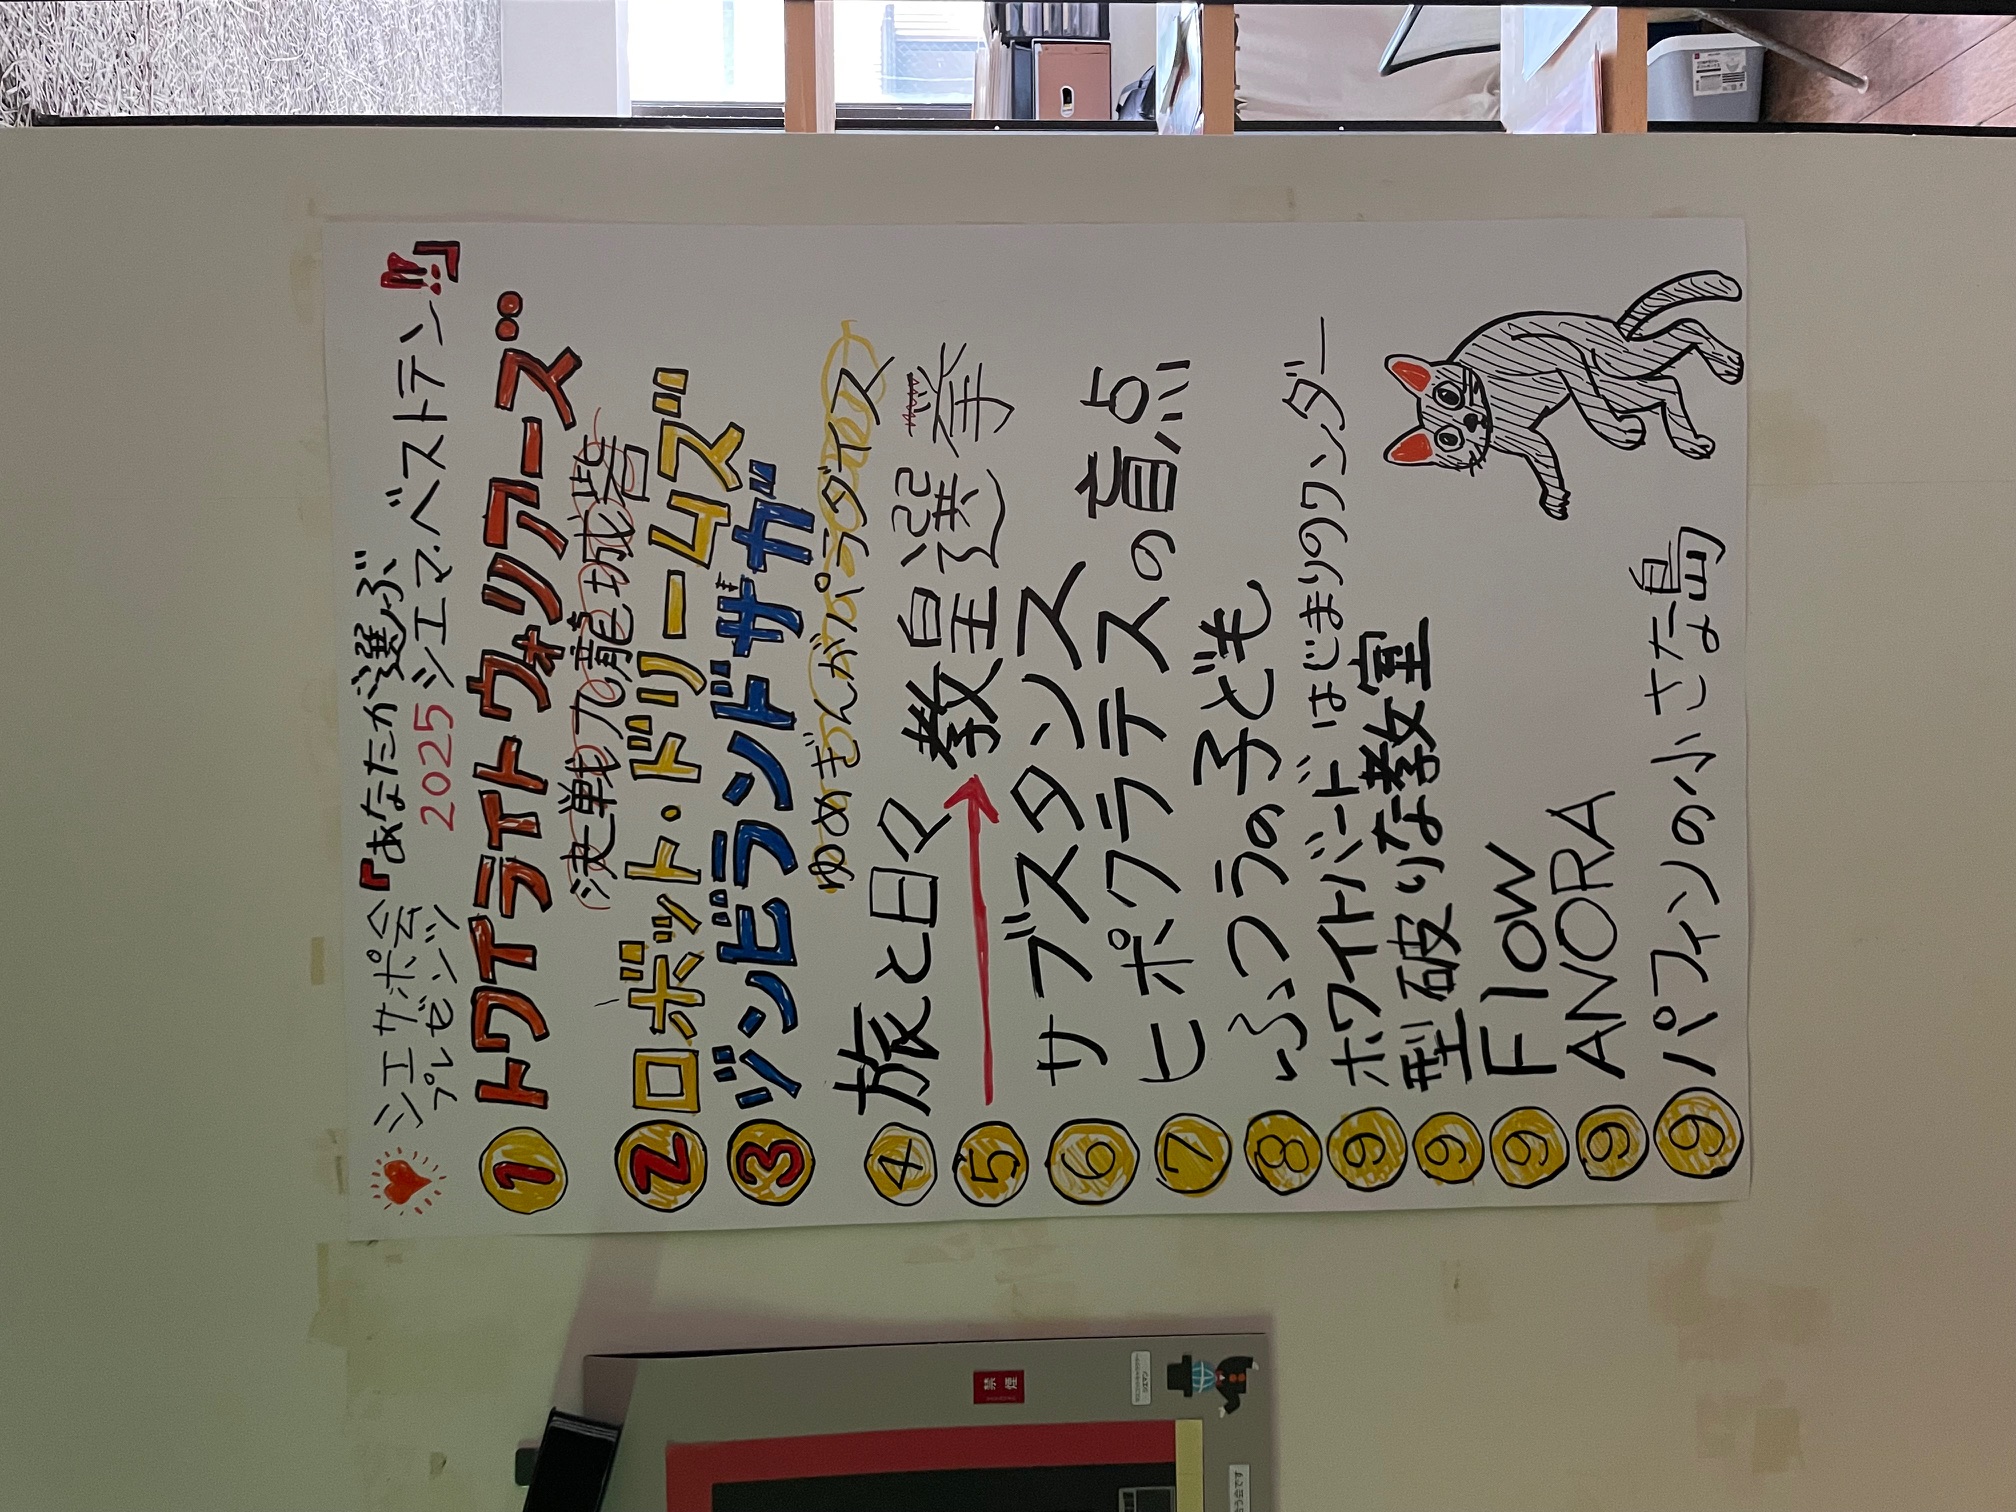 シエサポ会
プレゼンツ
『あなたが選ぶ
2025シエマ・ベストテン!!』
1 トワイライトウォリアーズ…
決戦!九龍城砦
2 ロボット・ドリームズ
3 ジンビランドサガ
ゆめぎんがパラダイス
4 旅と日々
5 → 教皇選挙
6 サブスタンス
7 ヒポクラテスの盲点
8 ふつうの子ども
9 ホワイトバード はじまりのワンダー
9 型破りな教室
9 Flow
9 ANORA
9 パフィンの小さな島
禁煙